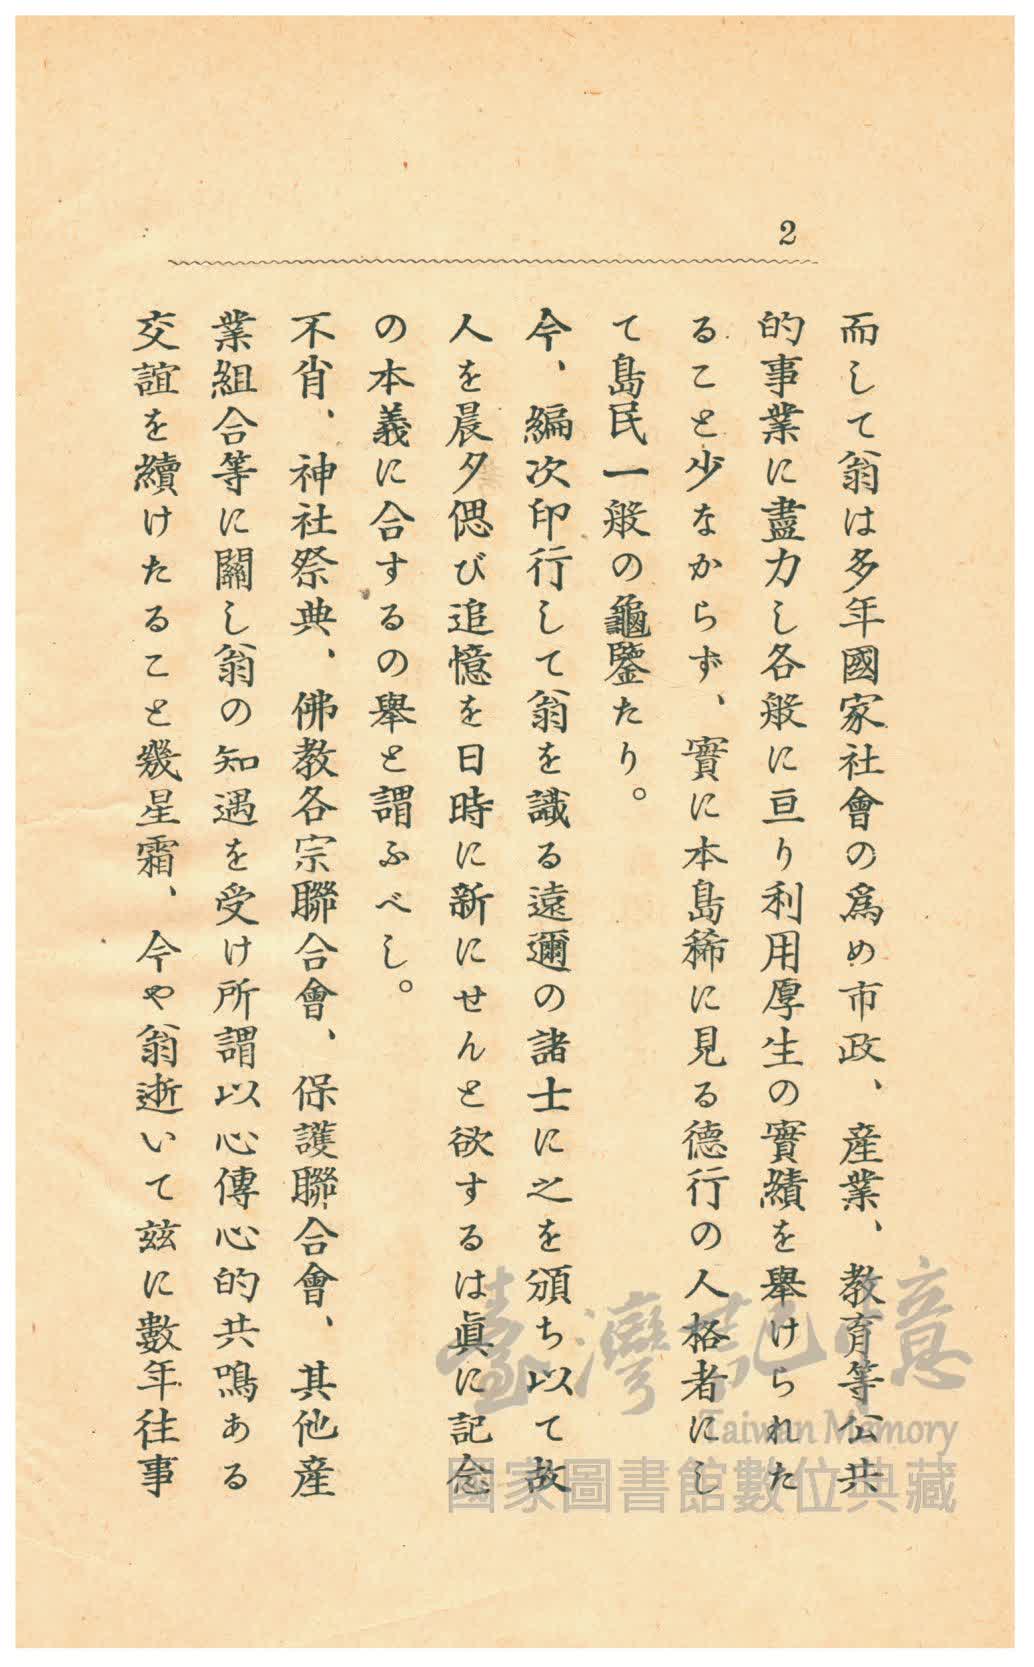 2
而して翁は多年國家社會の爲め市政、産業、教育等公共
的事業に盡力し各般に亘り利用厚生の實績を舉けられた
ること少なからず、實に本島稀に見る德行の人格者にし
て島民一般の龜鑒たり。
今、編次印行して翁を識る遠邇の諸士に之を頒ち以て故
人を晨夕偲び追憶を日時に新にせんと欲するは眞に記念
の本義に合するの舉と謂ふべし。
不肖、神社祭典、佛教各宗聯合會、保護聯合會、其他産
業組合等に關し翁の知遇を受け所謂以心傳心的共鳴ある
交誼を續けたること幾星霜、今や翁逝いて玆に數年往事
臺灣記憶
Taiwan Memory
國家圖書館數位典藏